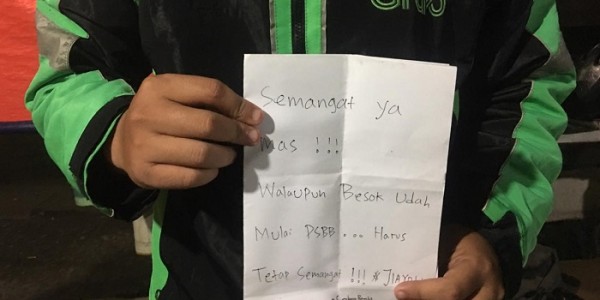 Semangat ya
Mas !!!
Walaupun Besok Udah
Mulai PSBB ... Harus
Tetap Semangat !!!